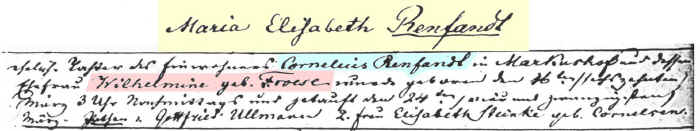 Maria Elisabeth Renfandt
ehelich. Tochter des Einwohners Cornelius Renfandt in Markushof und dessen
Ehefrau Wilhelmine geb. Froese wurde geboren den 16ten sechszehnten
März 3 Uhr Nachmittags und getauft den 24ten, vier und zwanzigsten
März. Pathen 1. Gottfried Ullmann 2. Frau Elisabeth Steinke geb. Cornelsen.